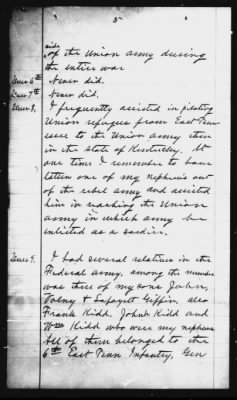 5
side
of the Union army during
the entire war
Answer 6th Never did.
Answer 7th Never did.
Answer 8, I frequently assisted in piloting
Union refugees from East Tenn
essee to the Union army then
in the state of Kentucky. At
one time I remember to have
taken one of my nephews out
of the rebel army and assisted
him in reaching the Union
army in which army he
enlisted as a soldier.
Answer 9. I had several relatives in the
Federal army. among the number
was three of my sons John,
Volny & Lafayett Giffin, also
Frank Kidd, John Kidd and
Wm Kidd who were my nephews
all of them belonged to the
6th East Tenn Infantry, Gen